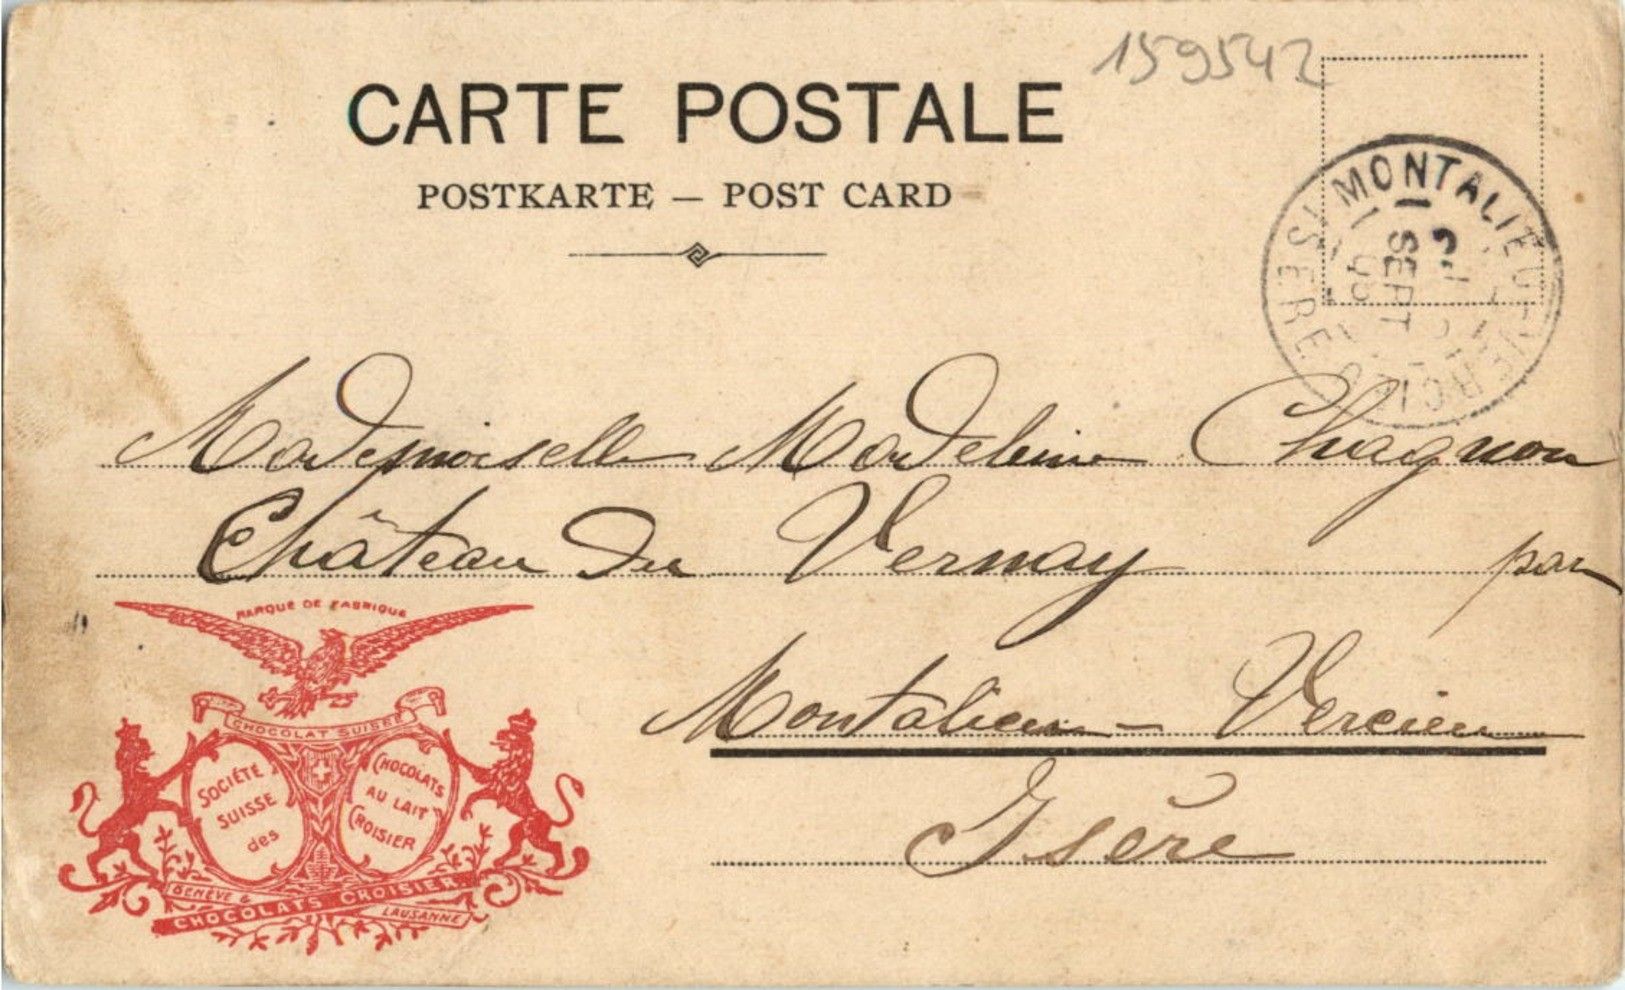 159542
CARTE POSTALE
POSTKARTE — POST CARD
MONTALIEU-VERCIEU
ISERE
SEPT
Mademoiselle Madeleine Chagnon
Château du Vernay par
Montalieu - Vercieu
Isère
MARQUE DE FABRIQUE
CHOCOLAT SUISSE
SOCIÉTÉ
SUISSE
des
CHOCOLATS
AU LAIT
CROISIER
GENÈVE &
CHOCOLATS CROISIER
LAUSANNE